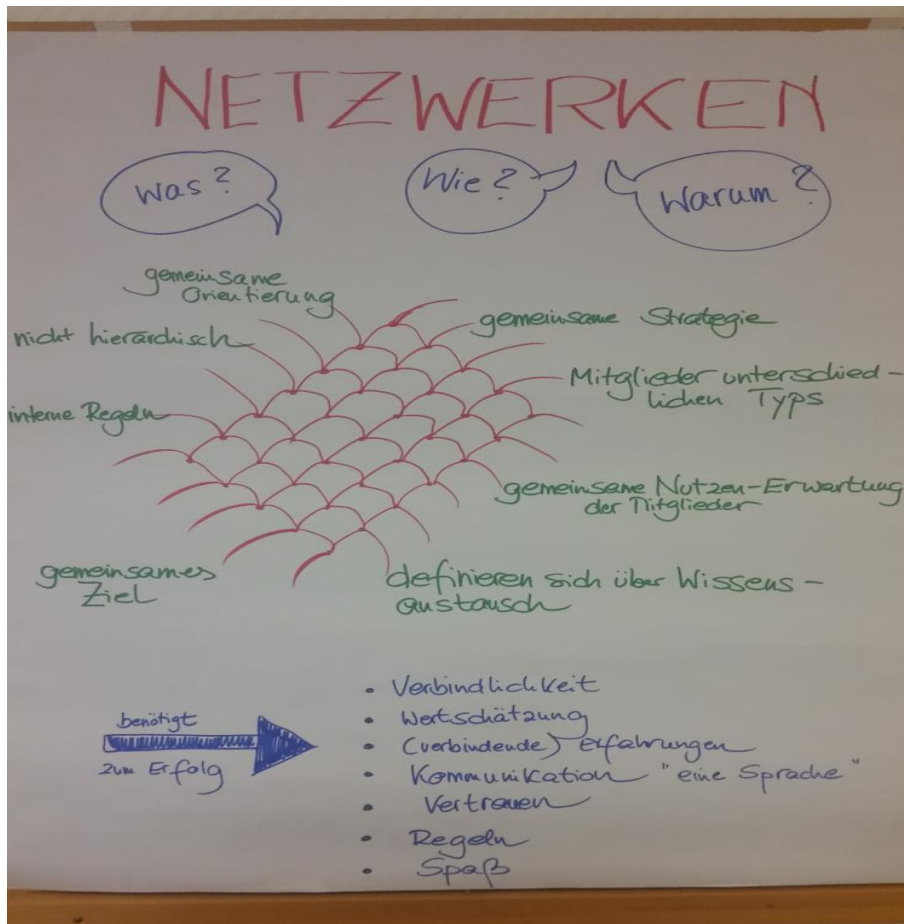 NETZWERKEN
Was?
Wie?
Warum?
gemeinsame
Orientierung
nicht hierarchisch
interne Regeln
gemeinsames
Ziel
gemeinsame Strategie
Mitglieder unterschied-
lichen Typs
gemeinsame Nutzen-Erwartung
der Mitglieder
definieren sich über Wissens-
austausch
benötigt
zum Erfolg
• Verbindlichkeit
• Wertschätzung
• (verbindende) Erfahrungen
• Kommunikation "eine Sprache"
• Vertrauen
• Regeln
• Spaß